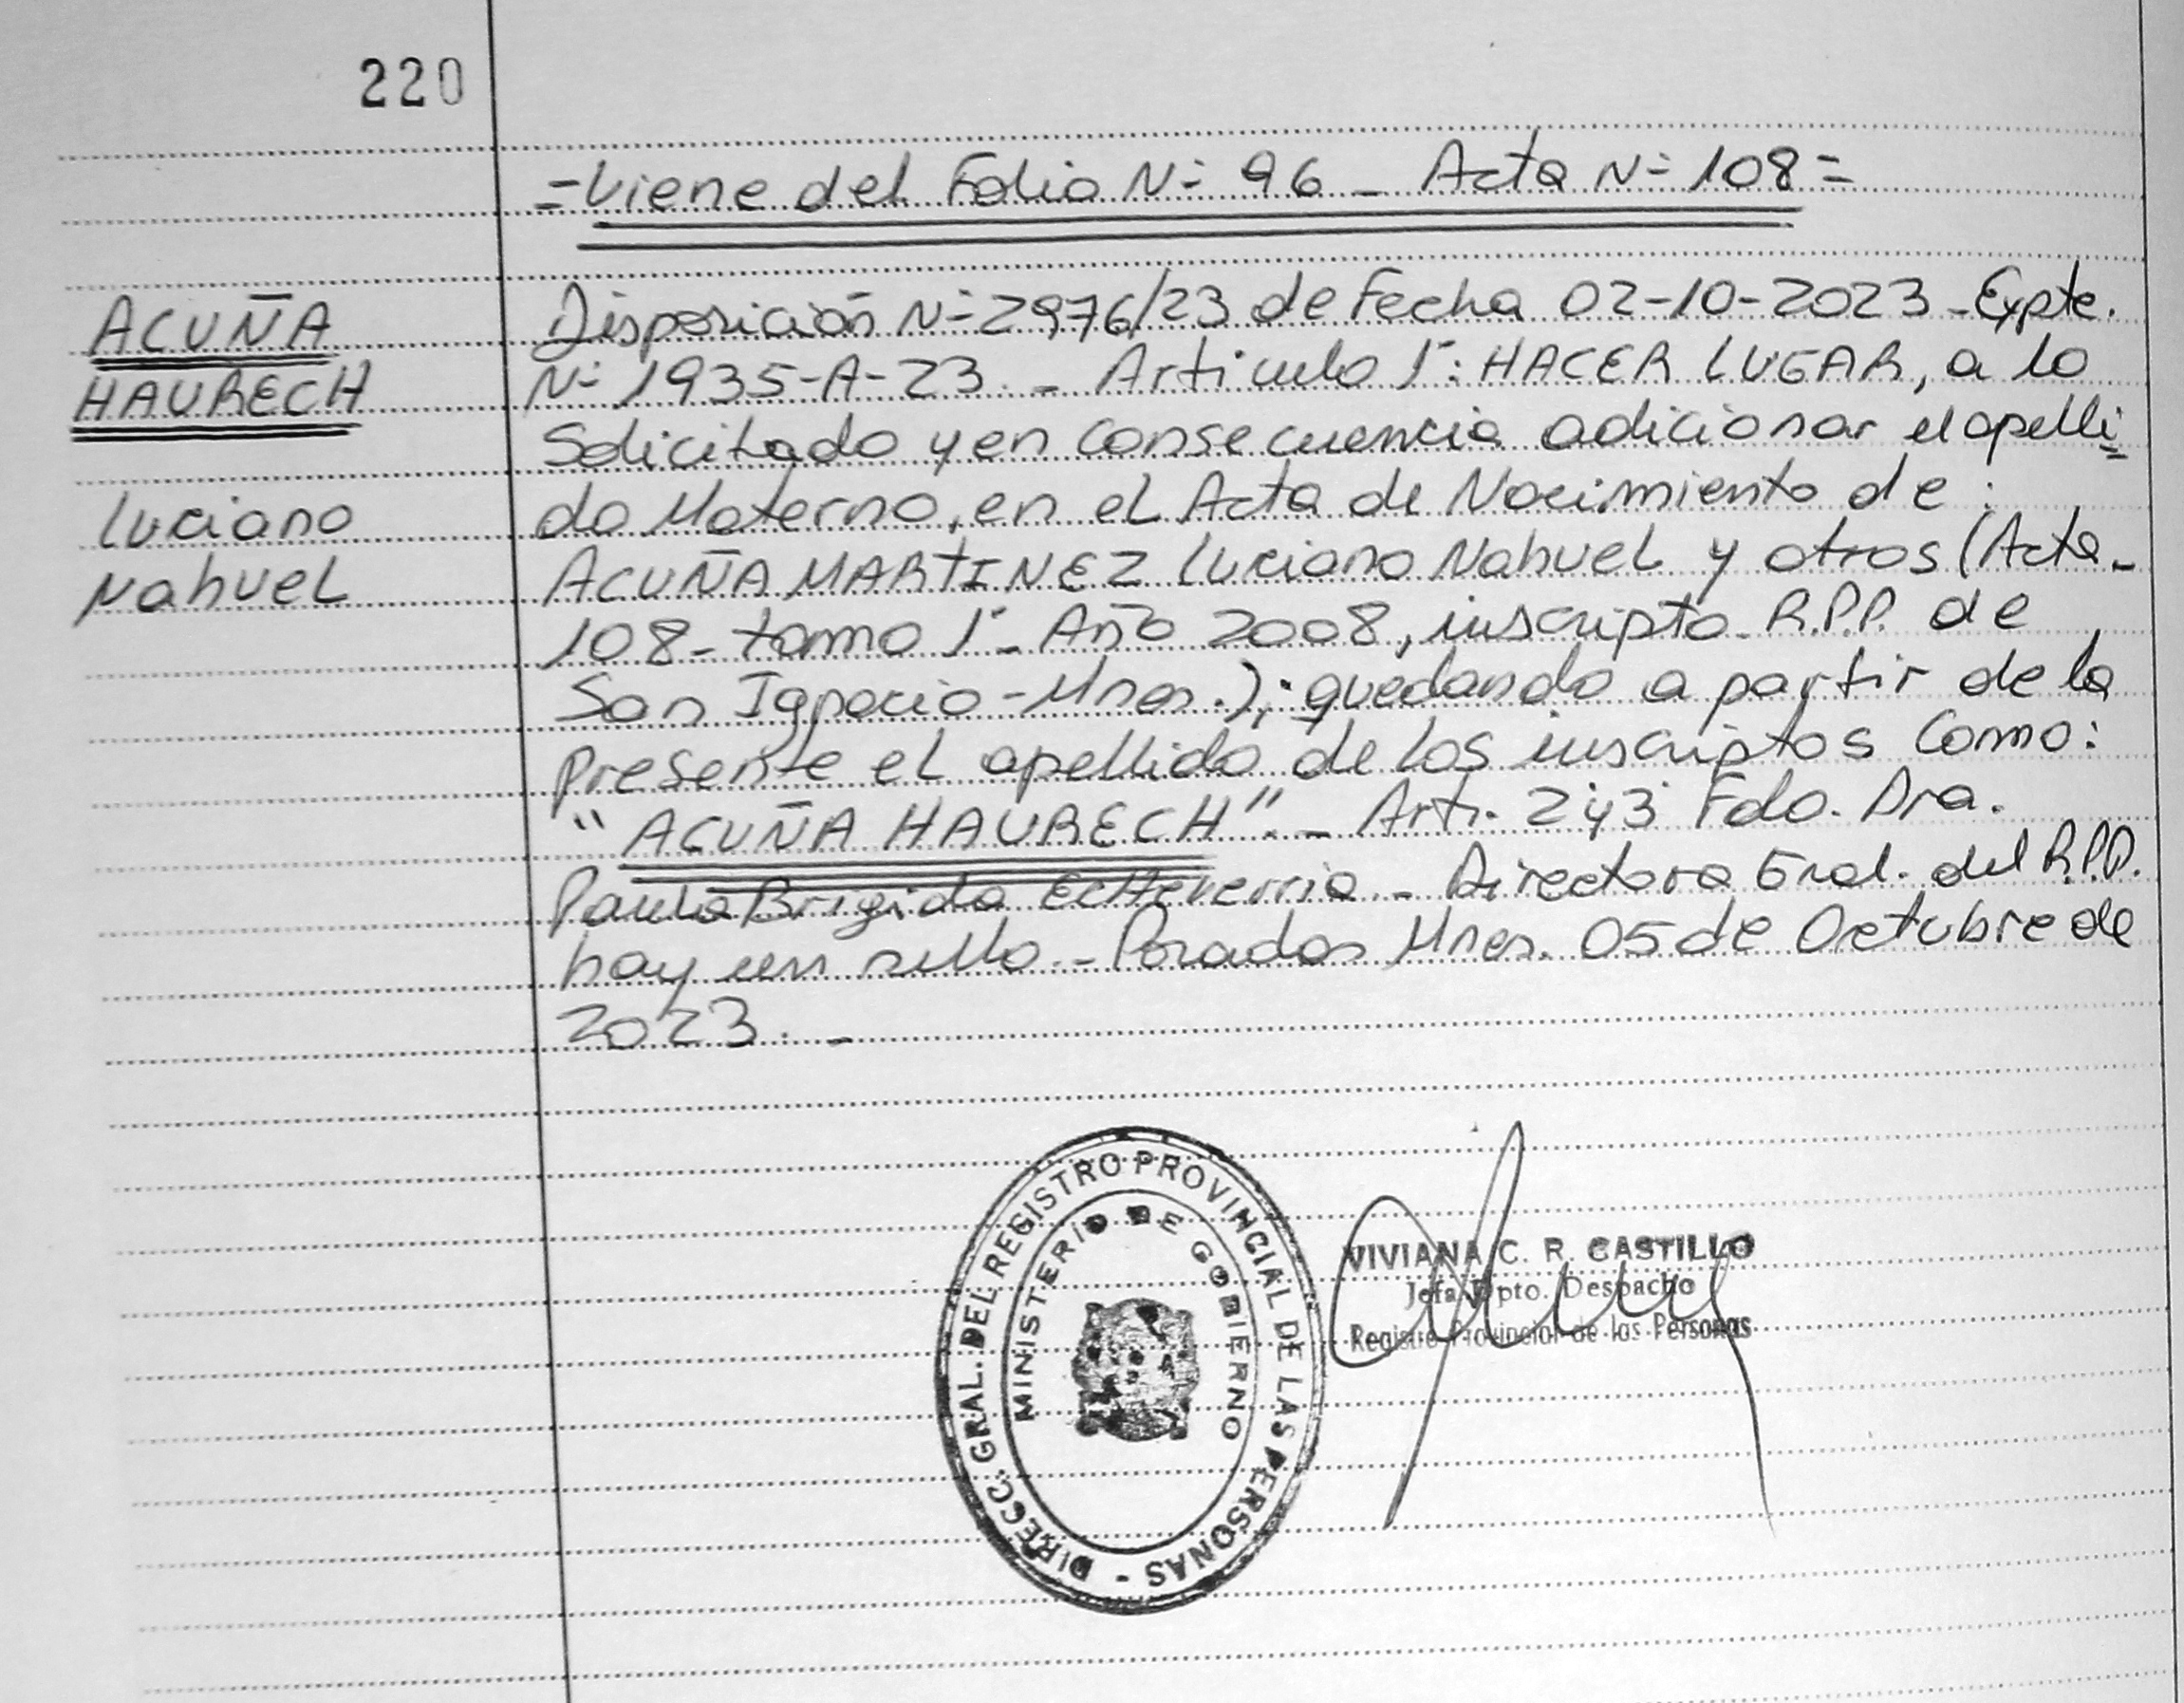 220
=Viene del Folio N- 96 - Acta N- 108=
ACUÑA
HAURECH
Luciano
Nahuel
Disposición N- 2976/23 de Fecha 02-10-2023 - Expte.
N- 1935-A-23. - Articulo 1°: HACER LUGAR, a lo
Solicitado y en Consecuencia adicionar el apelli=
do Materno, en el Acta de Nacimiento de:
ACUÑA MARTINEZ Luciano Nahuel y otros (Acta-
108- tomo 1°- Año 2008, inscripto R.P.P. de
San Ignacio - Mnes.); quedando a partir de la
presente el apellido de los inscriptos Como:
"ACUÑA HAURECH". - Art. 2 y 3 Fdo. Dra.
Paula Brigida Echeverria - Directora Gral. del R.P.P.
hay un sello. - Posadas Mnes. 05 de Octubre de
2023. -
DIRECC. GRAL. DEL REGISTRO PROVINCIAL DE LAS PERSONAS -
MINISTERIO DE GOBIERNO
VIVIANA C. R. CASTILLO
Jefa Dpto. Despacho
Registro Provincial de las Personas